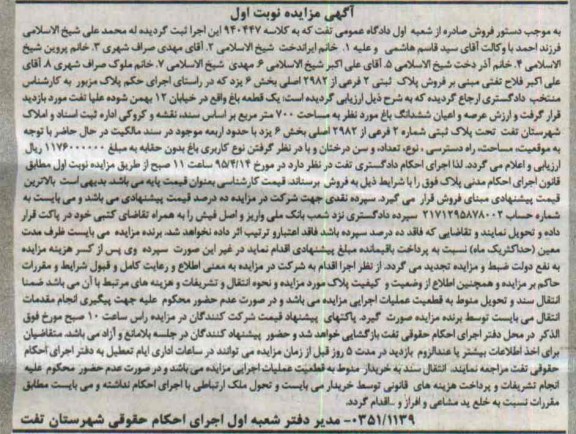 آگهی مزایده نوبت اول
به موجب دستور فروش صادره از شعبه اول دادگاه عمومی تفت که به کلاسه ۹۴۰۴۴۷ این اجرا ثبت گردیده له محمد علی شیخ الاسلامی
فرزند احمد با وکالت آقای سید قاسم هاشمی و علیه ۱. خانم ایراندخت شیخ الاسلامی ۲. آقای مهدی صراف شهری ۳. خانم پروین شیخ
الاسلامی ۴. خانم آذر دخت شیخ الاسلامی ۵. آقای علی اکبر شیخ الاسلامی ۶. مهدی شیخ الاسلامی ۷. خانم ملوک صراف شهری ۸. آقای
علی اکبر فلاح تفتی مبنی بر فروش پلاک ثبتی ۲ فرعی از ۲۹۸۲ اصلی بخش ۶ یزد که در راستای اجرای حکم پلاک مزبور به کارشناس
منتخب دادگستری ارجاع گردیده که به شرح ذیل ارزیابی گردیده است: یک قطعه باغ واقع در خیابان ۱۲ بهمن شوده علیا تفت مورد بازدید
قرار گرفت و ارزش عرصه و اعیان ششدانگ باغ مورد نظر به مساحت ۷۰۰ متر مربع بر اساس سند، نقشه و کروکی اداره ثبت اسناد و املاک
شهرستان تفت تحت پلاک ثبتی شماره ۲ فرعی از ۲۹۸۲ اصلی بخش ۶ یزد با حدود اربعه موجود در سند مالکیت در حال حاضر با توجه
به موقعیت، مساحت، راه دسترسی، نوع، تعداد، و سن درختان و با در نظر گرفتن نوع کاربری باغ بدون حقابه به مبلغ ۱۱۷۶۰۰۰۰۰۰ ریال
ارزیابی و اعلام می گردد. لذا اجرای احکام دادگستری تفت در نظر دارد در مورخ ۹۵/۴/۱۴ ساعت ۱۱ صبح از طریق مزایده نوبت اول مطابق
قانون اجرای احکام مدنی پلاک فوق را با شرایط ذیل به فروش برساند. قیمت کارشناسی بعنوان قیمت پایه می باشد. بدیهی است بالاترین
قیمت پیشنهادی مبنای فروش قرار می گیرد. سپرده نقدی جهت شرکت در مزایده ده درصد قیمت پیشنهادی می باشد و می بایست به
شماره حساب ۲۱۷۱۲۹۵۸۷۸۰۰۲ سپرده دادگستری نزد شعب بانک ملی واریز و اصل فیش را به همراه تقاضای کتبی خود در پاکت قرار
داده و تحویل نمایند و تقاضایی که فاقد ده درصد سپرده باشد فاقد اعتبارو ترتیب اثر داده نخواهد شد. برنده مزایده می بایست ظرف مدت
معین (حداکثریک ماه) نسبت به پرداخت باقیمانده مبلغ پیشنهادی اقدام نماید در غیر این صورت سپرده وی پس از کسر هزینه مزایده
به نفع دولت ضبط و مزایده تجدید می گردد. از نظر اجرا اقدام به شرکت در مزایده به معنی اطلاع و رعایت کامل و قبول شرایط و مقررات
حاکم بر مزایده و همچنین اطلاع از وضعیت و کیفیت پلاک مورد مزایده و نحوه انتقال و تشریفات و هزینه های مرتبط با آن می باشد ضمنا
انتقال سند و تحویل منوط به قطعیت عملیات اجرایی مزایده می باشد و در صورت عدم حضور محکوم علیه جهت پیگیری انجام مقدمات
انتقال می بایست توسط برنده مزایده صورت گیرد. پاکتهای پیشنهاد قیمت شرکت کنندگان در مزایده راس ساعت ۱۰ صبح مورخ فوق
الذکر در محل دفتر اجرای احکام حقوقی تفت بازگشایی خواهد شد و حضور پیشنهاد کنندگان در جلسه بلامانع و آزاد می باشد. متقاضیان
برای اخذ اطلاعات بیشتر یا عندالزوم بازدید در مدت ۵ روز قبل از زمان مزایده می توانند در ساعات اداری ایام تعطیل به دفتر اجرای احکام
حقوقی تفت مراجعه نمایند. انتقال سند به خریدار منوط به قطعیت عملیات اجرایی مزایده می باشد و در صورت عدم حضور محکوم علیه
انجام تشریفات و پرداخت هزینه های قانونی توسط خریدار می بایست و تحویل ملک ارتباطی با اجرای احکام نداشته و می بایست مطابق
مقررات نسبت به خلع ید مشاعی و افراز و ..اقدام گردد.
۰۳۵۱/۱۱۳۹- مدیر دفتر شعبه اول اجرای احکام حقوقی شهرستان تفت